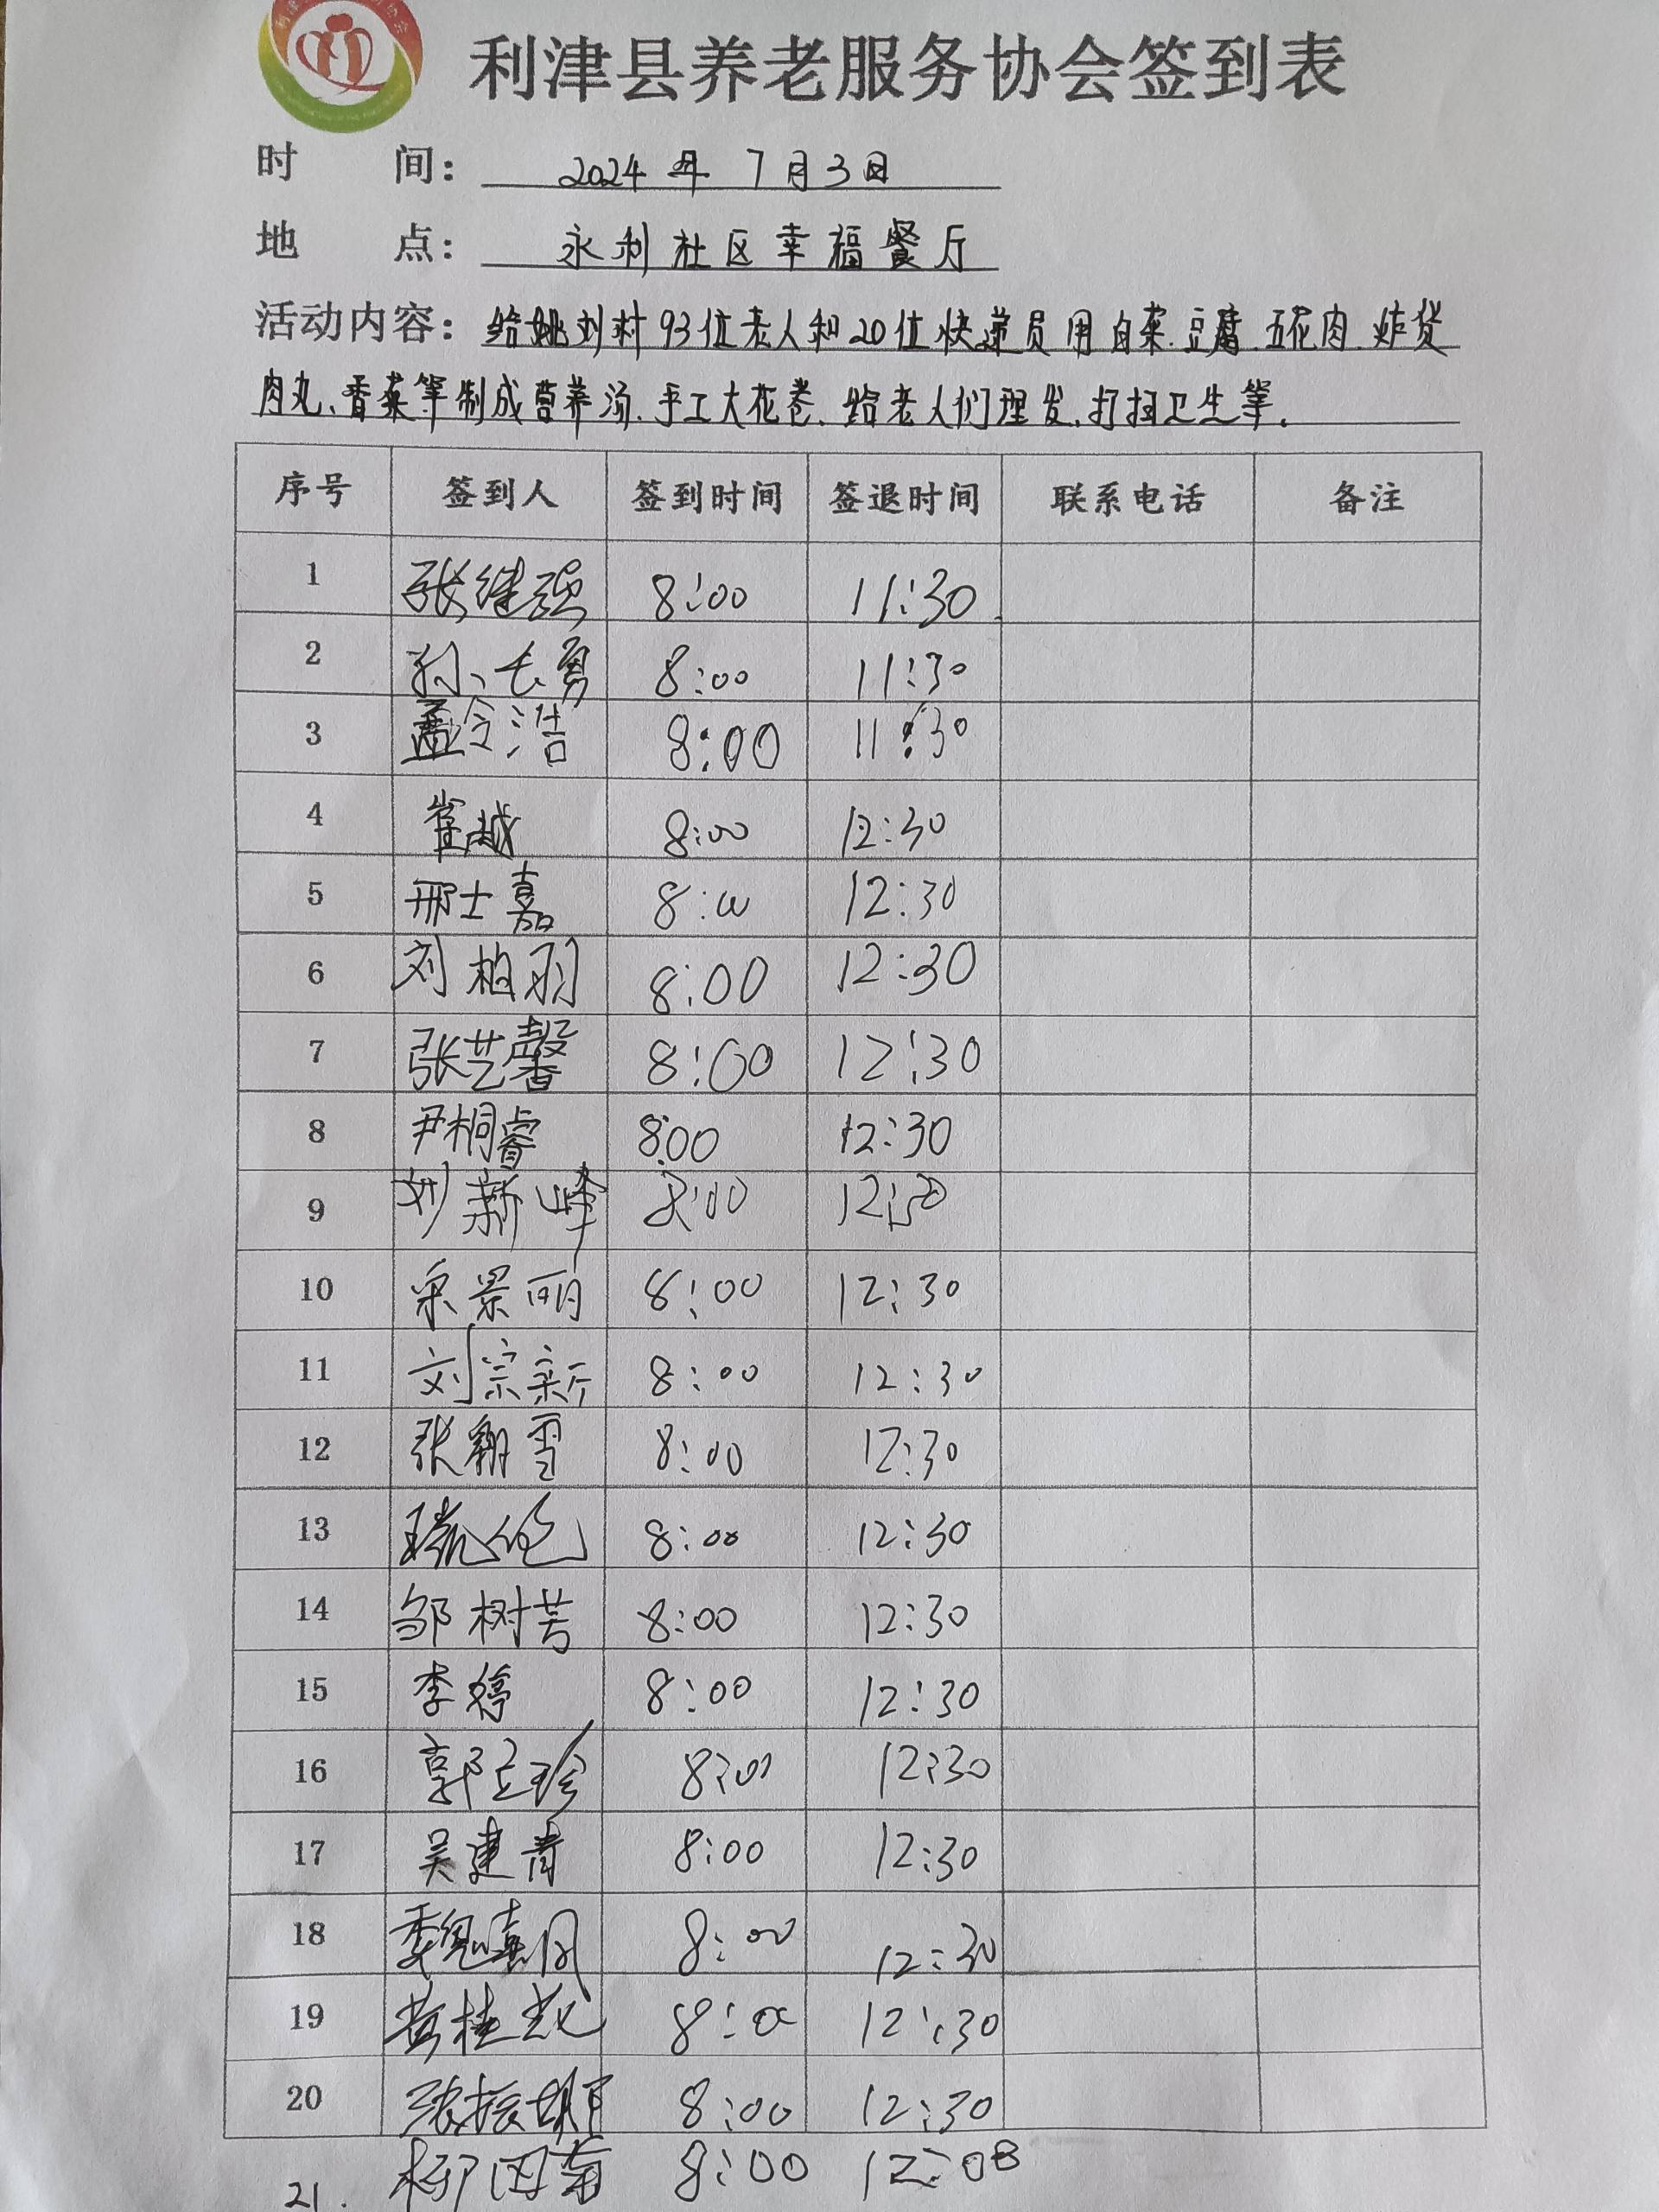 利津县养老服务协会签到表
时 间: 2024年7月3日
地 点: 永利社区幸福餐厅
活动内容: 给姚刘村93位老人和20位快递员用白菜.豆腐.五花肉.炸货
肉丸、香菜等制成营养汤.手工大花卷.给老人们理发.打扫卫生等.
序号 签到人 签到时间 签退时间 联系电话 备注
1 张继强 8:00 11:30
2 孙长勇 8:00 11:30
3 孟令浩 8:00 11:30
4 崔越 8:00 12:30
5 邢士嘉 8:00 12:30
6 刘柏羽 8:00 12:30
7 张艺馨 8:00 12:30
8 尹桐睿 8:00 12:30
9 刘新峰 8:00 12:30
10 宋景丽 8:00 12:30
11 刘宗新 8:00 12:30
12 张翱雪 8:00 12:30
13 8:00 12:30
14 邹树芳 8:00 12:30
15 李婷 8:00 12:30
16 郭立珍 8:00 12:30
17 吴建青 8:00 12:30
18 魏 8:00 12:30
19 黄桂 8:00 12:30
20 张振 8:00 12:30
21. 柳田菊 8:00 12:08